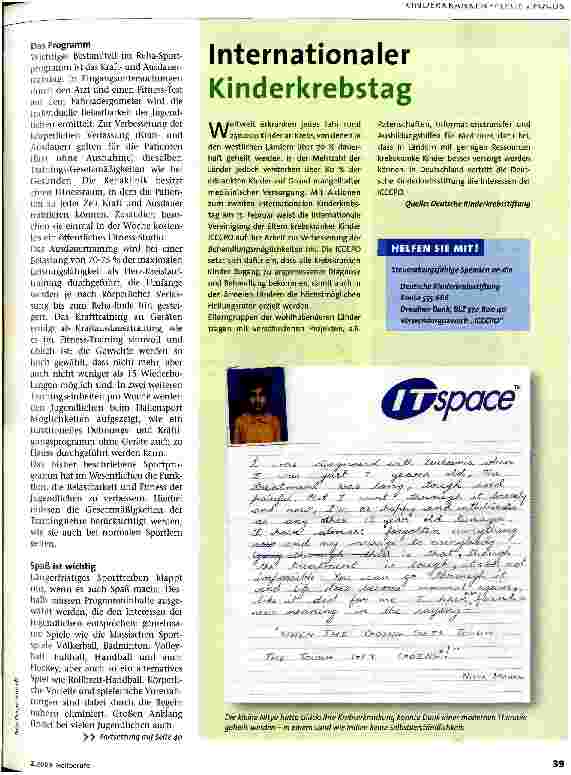 KINDERKRANKENPFLEGE · FOKUS
Das Programm
Wichtiger Bestandteil im Reha-Sport-
programm ist das Kraft- und Ausdauer-
training. In Eingangsuntersuchungen
durch den Arzt und einen Fitness-Test
auf dem Fahrradergometer wird die
individuelle Belastbarkeit der Jugend-
lichen ermittelt. Zur Verbesserung der
körperlichen Verfassung (Kraft- und
Ausdauer) gelten für die Patienten
(fast ohne Ausnahme) dieselben
Trainings-Gesetzmäßigkeiten wie bei
Gesunden. Die Rehaklinik besitzt
einen Fitnessraum, in dem die Patien-
ten zu jeder Zeit Kraft und Ausdauer
trainieren können. Zusätzlich besu-
chen sie einmal in der Woche kosten-
los ein öffentliches Fitness-Studio.
Das Ausdauertraining wird bei einer
Belastung von 70-75 % der maximalen
Leistungsfähigkeit als Herz-Kreislauf-
training durchgeführt, die Umfänge
werden je nach körperlicher Verfas-
sung bis zum Reha-Ende hin gestei-
gert. Das Krafttraining an Geräten
erfolgt als Kraftausdauertraining, wie
es im Fitness-Training sinnvoll und
üblich ist: die Gewichte werden so
hoch gewählt, dass nicht mehr, aber
auch nicht weniger als 15 Wiederho-
lungen möglich sind. In zwei weiteren
Trainingseinheiten pro Woche werden
den Jugendlichen beim Hallensport
Möglichkeiten aufgezeigt, wie ein
funktionelles Dehnungs- und Kräfti-
gungsprogramm ohne Geräte auch zu
Hause durchgeführt werden kann.
Das bisher beschriebene Sportpro-
gramm hat im Wesentlichen die Funk-
tion, die Belastbarkeit und Fitness der
Jugendlichen zu verbessern. Hierbei
müssen die Gesetzmäßigkeiten der
Trainingslehre berücksichtigt werden,
wie sie auch bei normalen Sportlern
gelten.
Spaß ist wichtig
Längerfristiges Sporttreiben klappt
nur, wenn es auch Spaß macht. Des-
halb müssen Programminhalte ausge-
wählt werden, die den Interessen der
Jugendlichen entsprechen: gemeinsa-
me Spiele wie die klassischen Sport-
spiele Völkerball, Badminton, Volley-
ball, Fußball, Handball und auch
Hockey, aber auch so ein alternatives
Spiel wie Rollbrett-Handball. Körperli-
che Vorteile und spielerische Vorerfah-
rungen sind dabei durch die Regeln
nahezu eliminiert. Großen Anklang
findet bei vielen Jugendlichen auch
>> Fortsetzung auf Seite 40
Internationaler
Kinderkrebstag
Weltweit erkranken jedes Jahr rund
250.000 Kinder an Krebs, von denen in
den westlichen Ländern über 70 % dauer-
haft geheilt werden. In der Mehrzahl der
Länder jedoch versterben über 80 % der
erkrankten Kinder auf Grund mangelhafter
medizinischer Versorgung. Mit Aktionen
zum zweiten Internationalen Kinderkrebs-
tag am 15. Februar weist die Internationale
Vereinigung der Eltern krebskranker Kinder
ICCCPO auf ihre Arbeit zur Verbesserung der
Behandlungsmöglichkeiten hin. Die ICCCPO
setzt sich dafür ein, dass alle krebskranken
Kinder Zugang zu angemessener Diagnose
und Behandlung bekommen, damit auch in
den ärmeren Ländern die höchstmöglichen
Heilungsraten erzielt werden.
Elterngruppen der wohlhabenderen Länder
tragen mit verschiedenen Projekten, z.B.
Patenschaften, Informationstransfer und
Ausbildungshilfen für Mediziner, dazu bei,
dass in Ländern mit geringen Ressourcen
krebskranke Kinder besser versorgt werden
können. In Deutschland vertritt die Deut-
sche Kinderkrebsstiftung die Interessen der
ICCCPO.
Quelle: Deutsche Kinderkrebsstiftung
HELFEN SIE MIT!
Steuerabzugsfähige Spenden an die
Deutsche Kinderkrebsstiftung
Konto 555 666
Dresdner Bank, BLZ 370 800 40
Verwendungszweck „ICCCPO“
ITspace™
I was diagnosed with leukaemia when
I was just years old. The
treatment was long, tough and
painful. But I went through it bravely
and now, I'm as happy and enthusiastic
as any other 12 year old teenager.
I have almost forgotten everything
now and my message to everybody
going through this is that, though
the treatment is tough, it's not
impossible. You can go through it
and life does become normal again,
like it did for me.
new meaning in the saying-
"WHEN THE GOING GETS TOUGH
THE TOUGH GET GOING!"
Die kleine Nitya hatte Glück: Ihre Krebserkrankung konnte Dank einer modernen Therapie
geheilt werden – in einem Land wie Indien keine Selbstverständlichkeit.
2.2003 Heilberufe
39